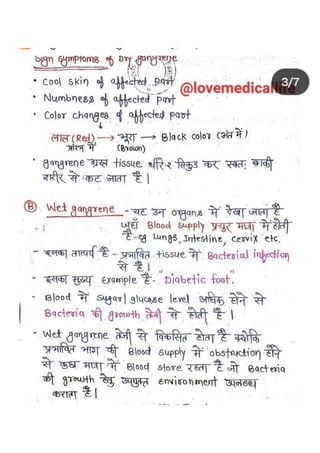 Sign symptoms of Dry gangrene
• Cool skin of affected part
@lovemedicallife
3/7
• Numbness of affected part
• Color changes of affected part
लाल (Red) → भूरा → Black color (अंत में)
प्रारंभ में (Brown)
• gangrene ग्रस्त tissue धीरे २ सिकुड कर स्वतः बाकी
शरीर से कट जाता है।
(B) Wet gangrene - यह उन organs में देखा जाता है
जहाँ Blood supply प्रचुर मात्रा में होती
है - eg lungs, Intestine, Cervix etc.
- इसका तात्पर्य है - प्रभावित tissue में Bacterial infection
से है।
- इसका मुख्य Example है - "Diabetic foot".
- Blood में sugar/glucose level अधिक होने से
Bacteria की growth तेजी से होती है।
- Wet gangrene तेजी से विकसित होता है क्योकि
प्रभावित भाग की Blood supply में obstruction होने
से कुछ मात्रा में Blood store रहता है जो Bacteria
की growth हेतु उपयुक्त environment उपलब्ध
कराता है।